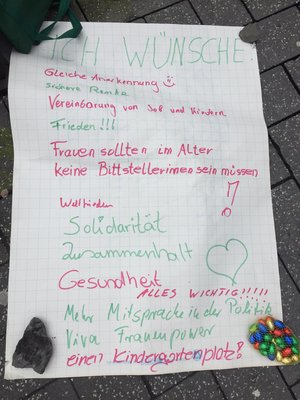 ICH WÜNSCHE:
Gleiche Anerkennung
sichere Rente
Vereinbarung von Job und Kindern
Frieden!!!
Frauen sollten im Alter
keine Bittstellerinnen sein müssen
!
Weltfrieden
Solidarität
Zusammenhalt
Gesundheit
ALLES WICHTIG!!!!!
Mehr Mitsprache in der Politik
Viva Frauenpower
einen Kindergartenplatz!